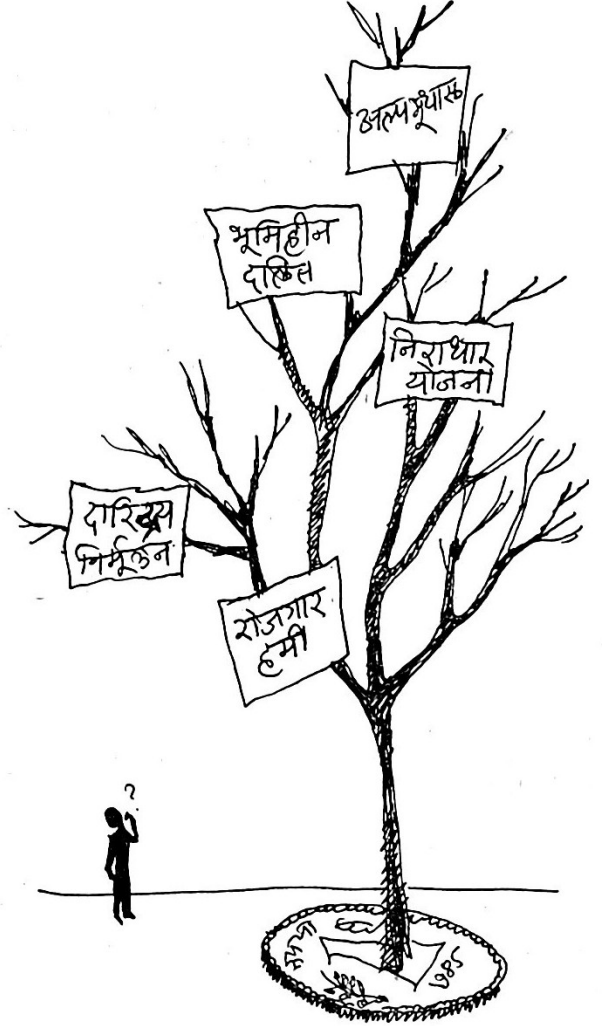 अल्पभूधारक
भूमिहीन
दलित
निराधार
योजना
दारिद्र्य
निर्मूलन
रोजगार
हमी
?
रुपया